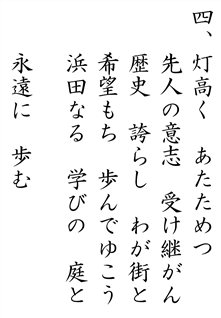 四、灯高く　あたためつ
先人の意志　受け継がん
歴史　誇らし　わが街と
希望もち　歩んでゆこう
浜田なる　学びの　庭と
永遠に　歩む